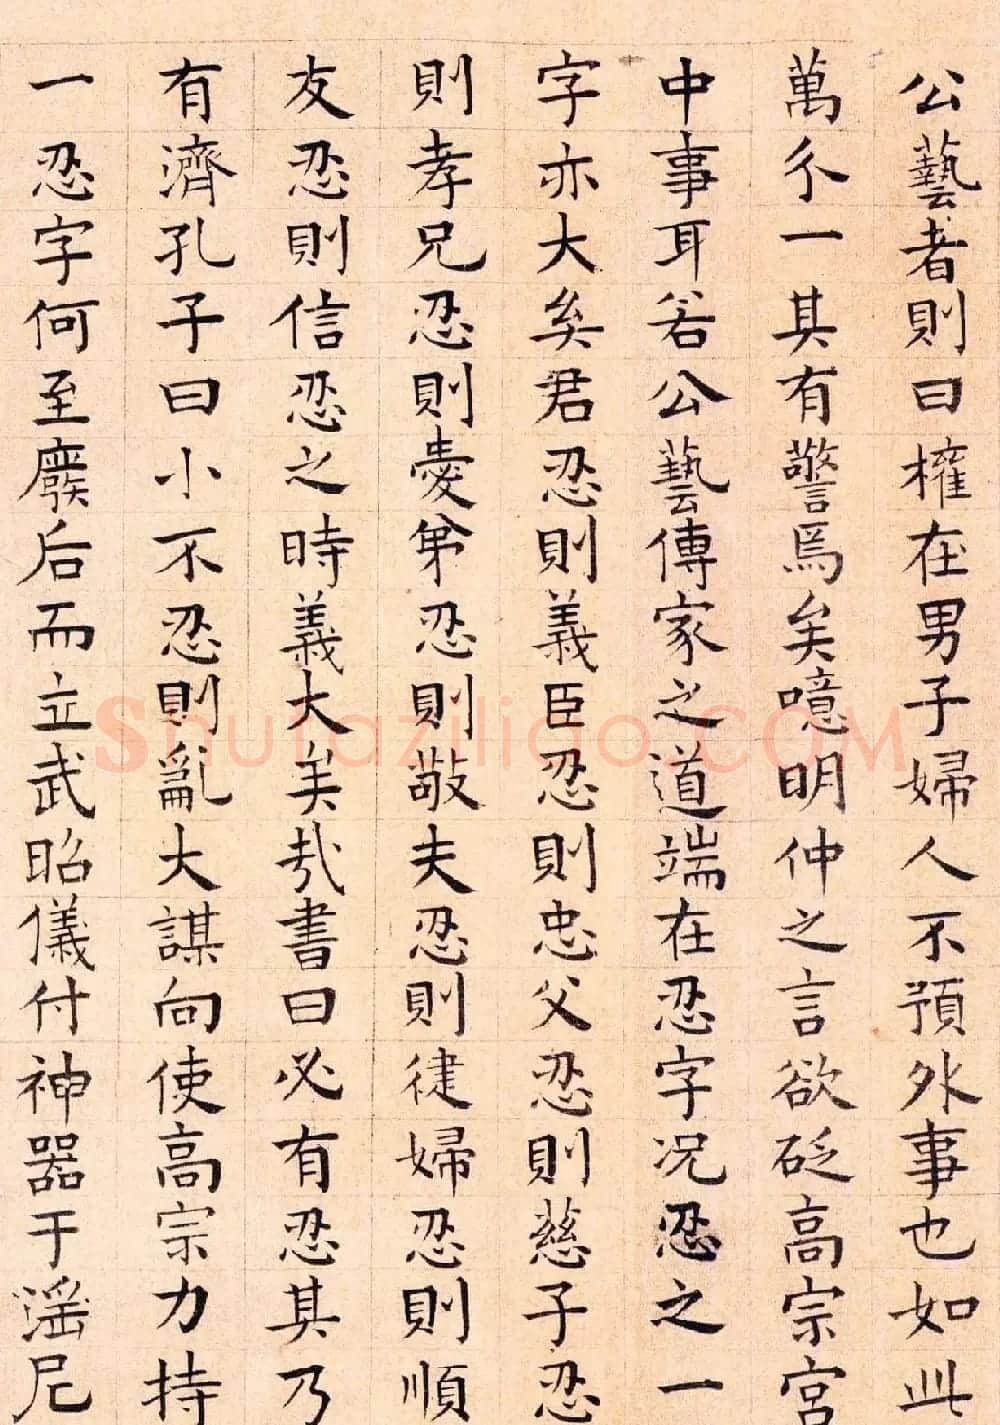 公藝者則曰權在男子婦人不預外事也如此
萬分一其有警焉矣噫明仲之言欲砭高宗宮
中事耳若公藝傳家之道端在忍字况忍之一
字亦大矣君忍則義臣忍則忠父忍則慈子忍
則孝兄忍則愛弟忍則敬夫忍則徤婦忍則順
友忍則信忍之時義大矣哉書曰必有忍其乃
有濟孔子曰小不忍則亂大謀向使高宗力持
一忍字何至廢后而立武昭儀付神器于淫尼
Shufaziliao.COM